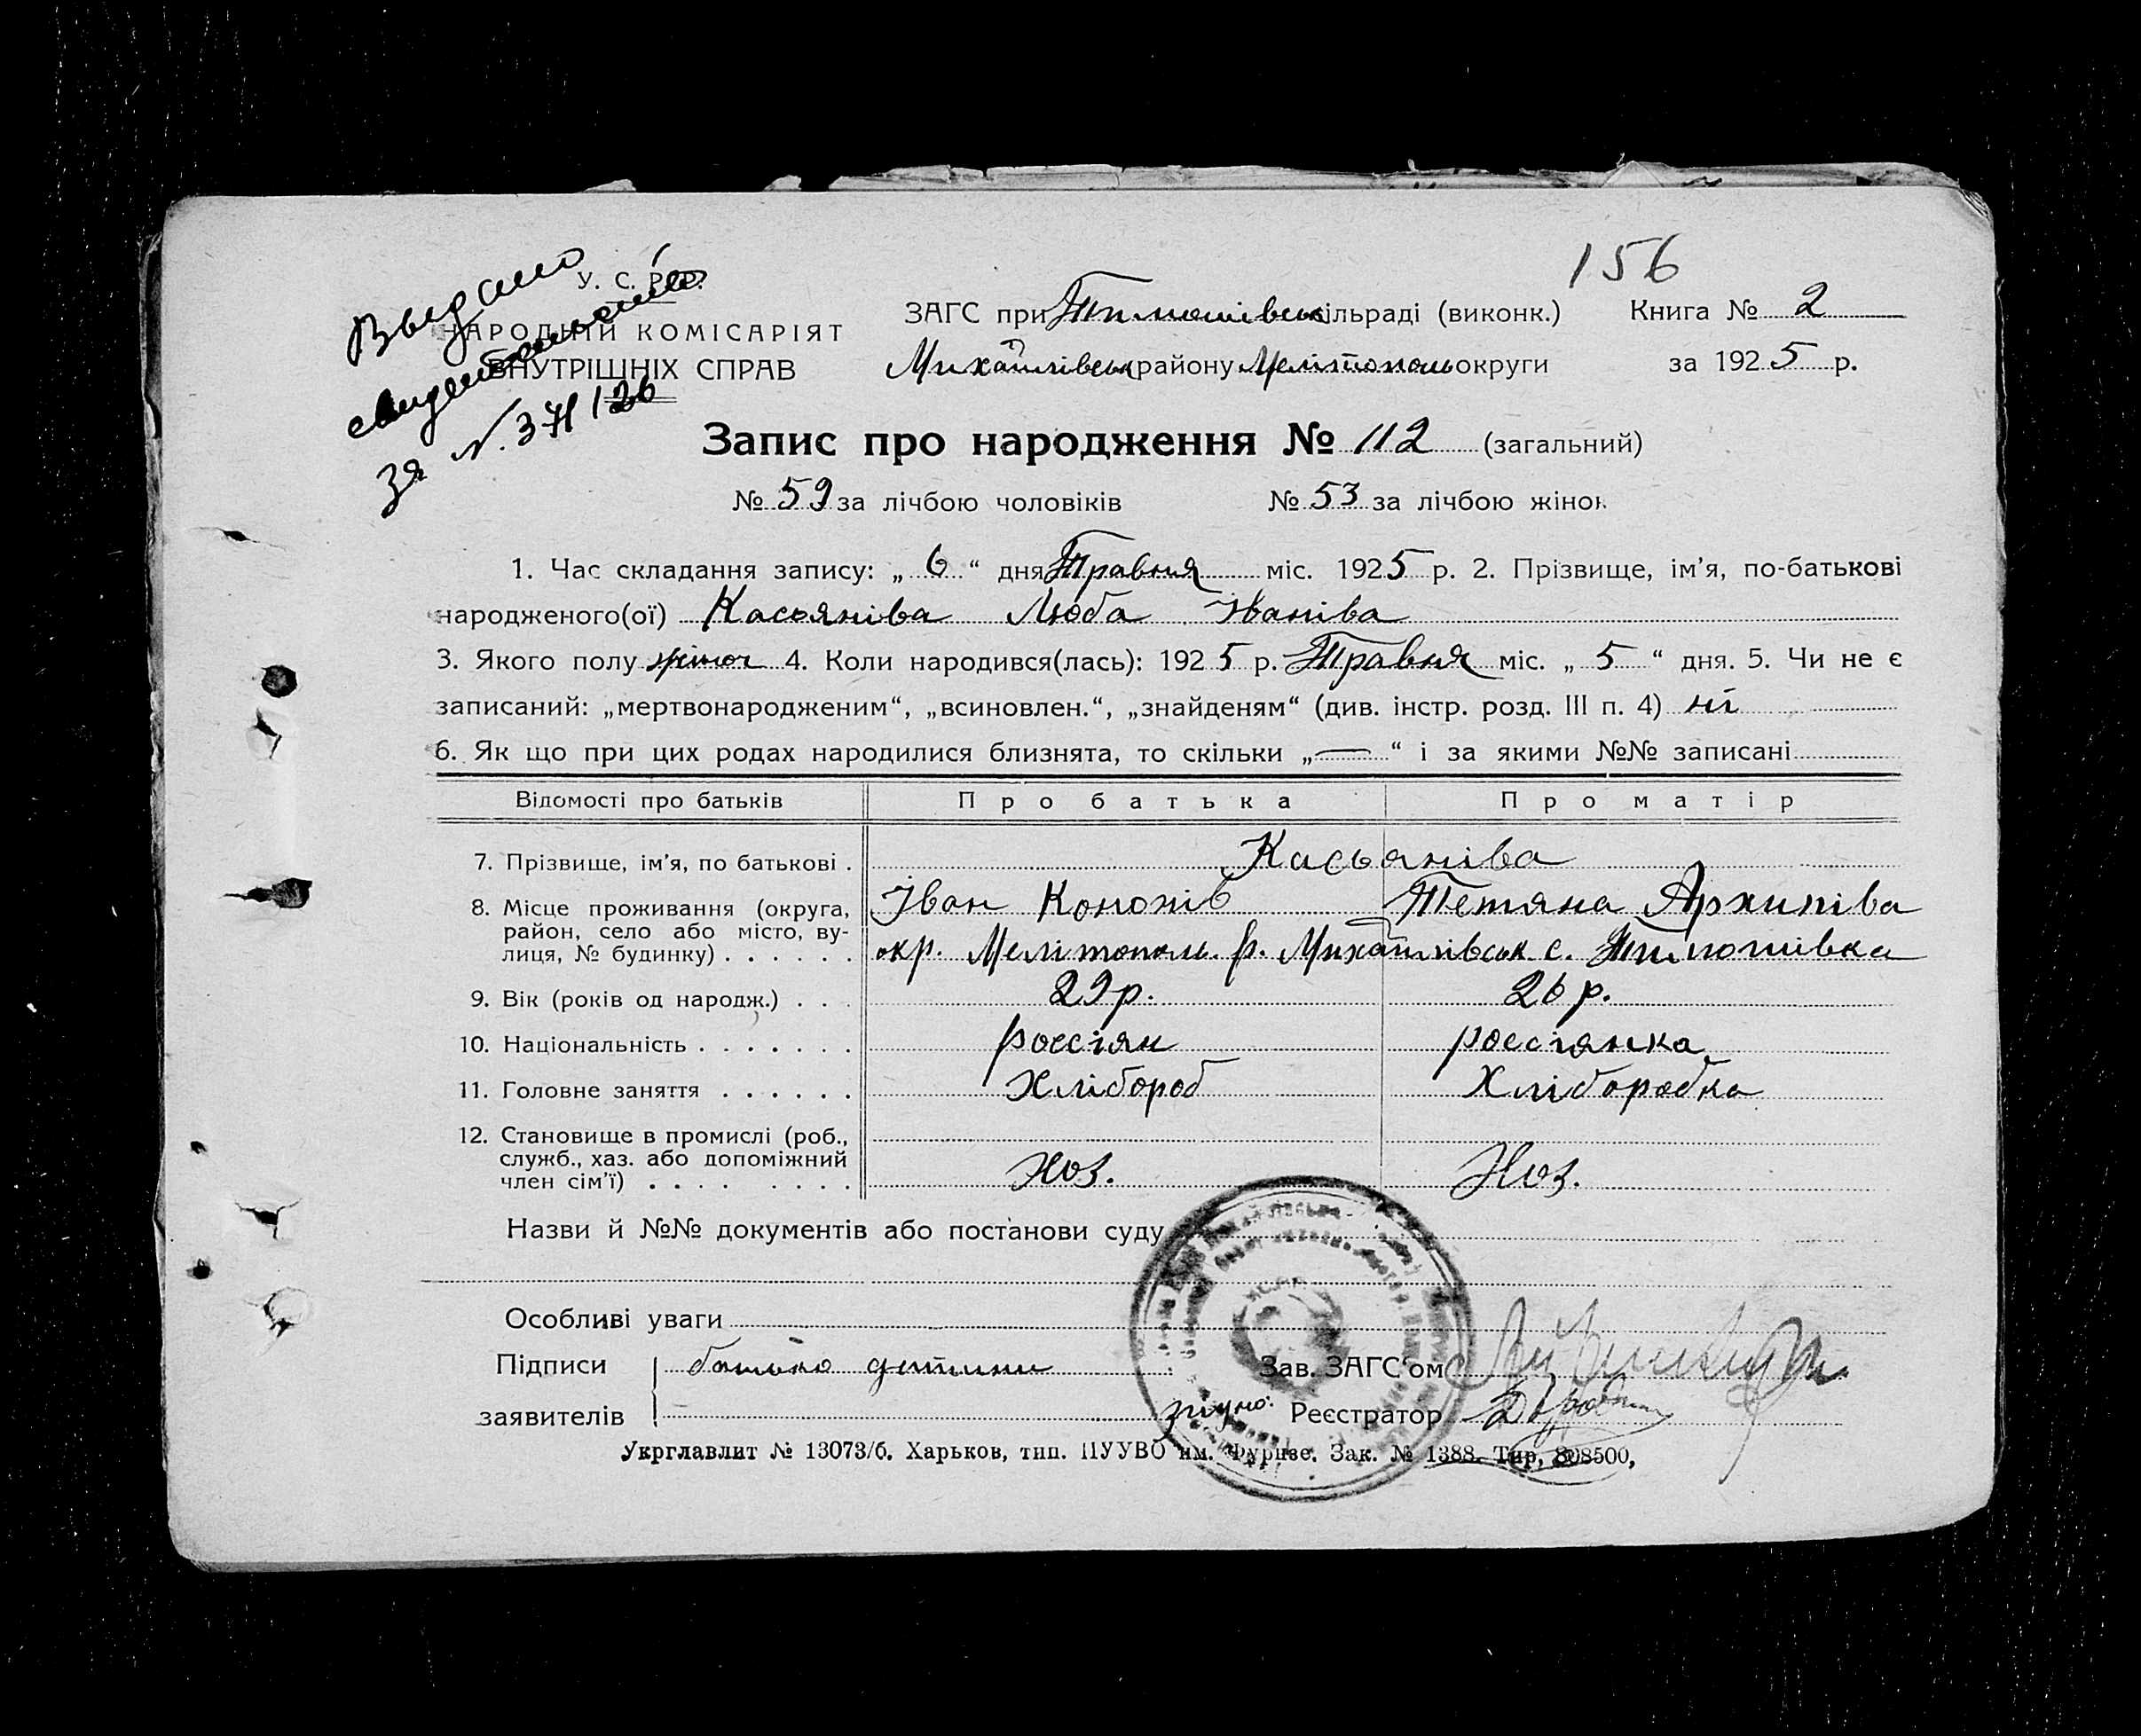 156
Выдано
свидетельство
За N. 371/26
У. С. Р. Р.
НАРОДНІЙ КОМІСАРІЯТ
ВНУТРІШНІХ СПРАВ
ЗАГС при Тимошівськ сільраді (виконк.) Книга № 2
Михайлівськ району Мелітополь округи за 1925 р.
Запис про народження № 112 (загальний)
№ 59 за лічбою чоловіків № 53 за лічбою жінок
1. Час складання запису: „ 6 “ дня Травня міс. 1925 р. 2. Прізвище, ім’я, по-батькові
народженого(ої) Касьянiва Люба Іванiва
3. Якого полу жіноч 4. Коли народився(лась): 1925 р. Травня міс. „ 5 “ дня. 5. Чи не є
записаний: „мертвонародженим“, „всиновлен.“, „знайденям“ (див. інстр. розд. III п. 4) ні
6. Як що при цих родах народилися близнята, то скільки „—“ і за якими №№ записані
Відомості про батьків Про батька Про матір
7. Прізвище, ім’я, по батькові . Касьянiва
Іван Кононiв Тетяна Архипiва
8. Місце проживання (округа,
район, село або місто, ву-
лиця, № будинку) . . . . . . окр. Мелітополь. р. Михайлівськ с. Тимошівка
9. Вік (років од народж.) . . . 29 р. 26 р.
10. Національність . . . . . . . россіян россіянка
11. Головне заняття . . . . . . Хлібороб Хліборобка
12. Становище в промислі (роб.,
служб., хаз. або допоміжний
член сім’ї) . . . . . . . . Хоз. Хоз.
Назви й №№ документів або постанови суду
Особливі уваги
Підписи батько дитини Зав. ЗАГС’ом
заявителів Реєстратор
Укрглавлит № 13073/б. Харьков, тип. ПУУВО им. Фрунзе. Зак. № 1388. Тир. 808500,